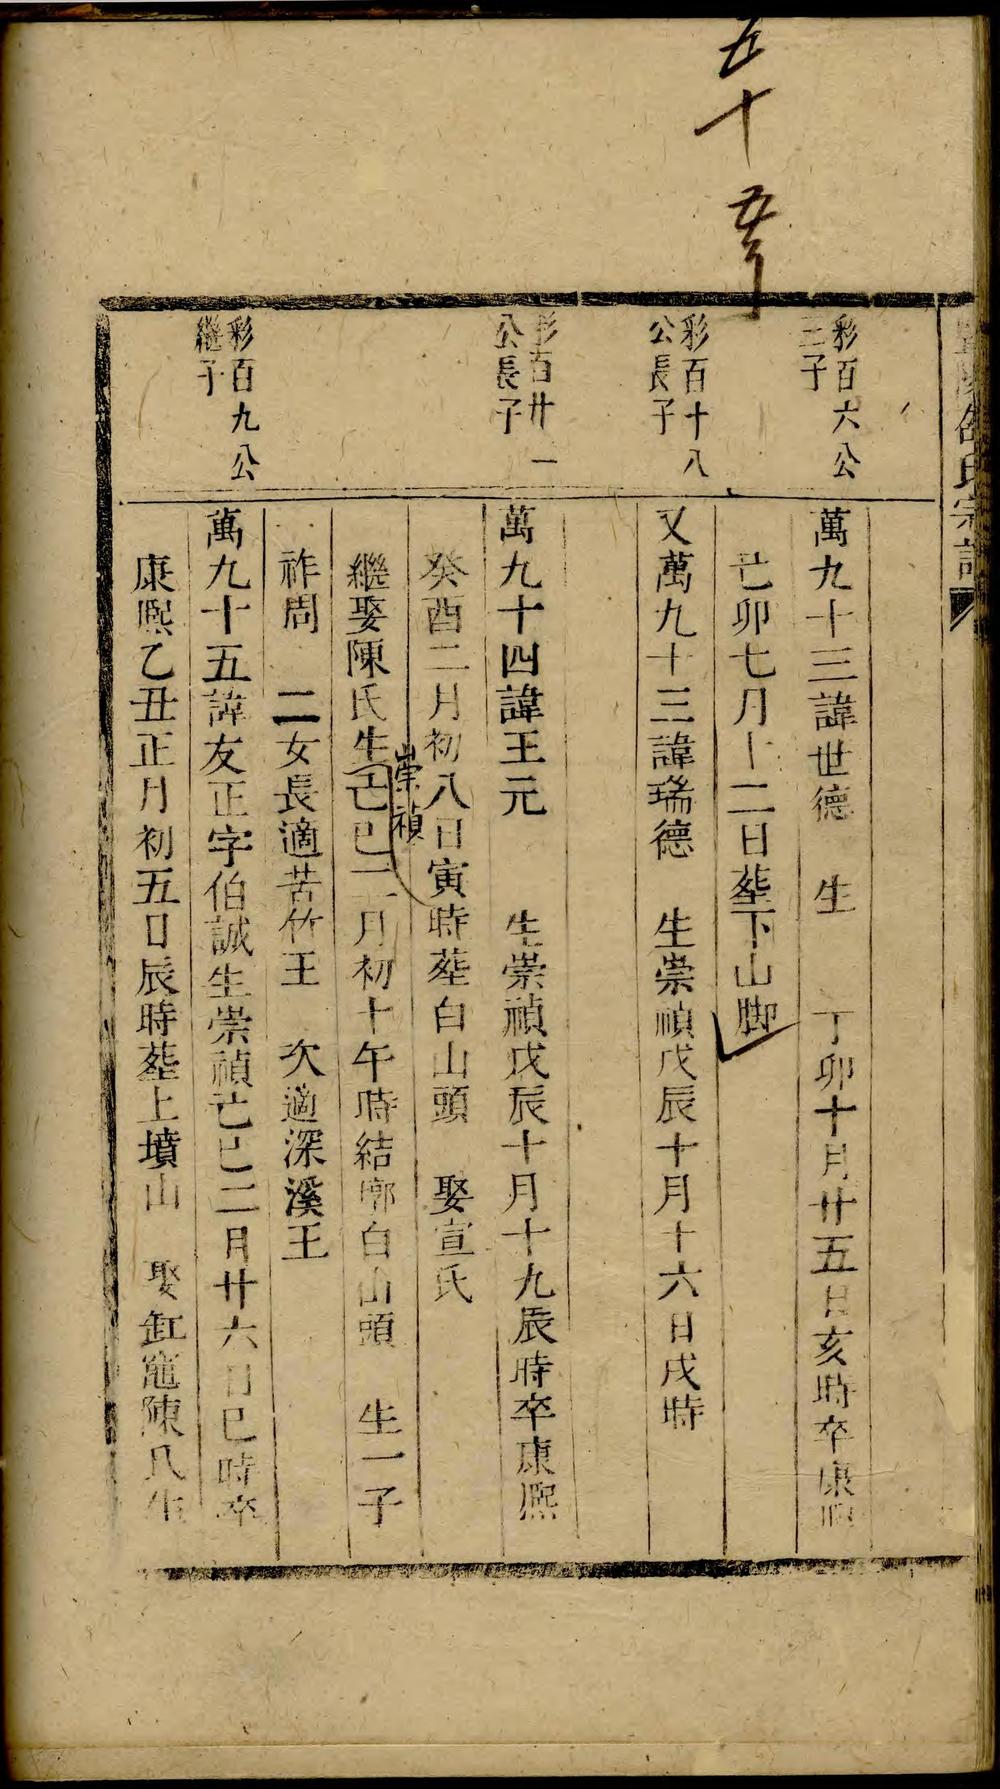 五十
氏宗譜
彩百六公
三子
萬九十三諱世德 生 丁卯十月廿五日亥時卒康熙
己卯七月十二日塟下山脚
彩百十八
公長子
又萬九十三諱瑞德 生崇禎戊辰十月十六日戌時
彩百廿一
公長子
萬九十四諱王元 生崇禎戊辰十月十九辰時卒康熙
癸酉二月初八日寅時塟白山頭 娶宣氏
崇禎
繼娶陳氏生己巳二月初十午時結槨白山頭 生一子
祚周 二女長適苦竹王 次適深溪王
彩百九公
繼子
萬九十五諱友正字伯誠生崇禎己巳二月廿六日巳時卒
康熙乙丑正月初五日辰時塟上墳山 娶缸竈陳氏生